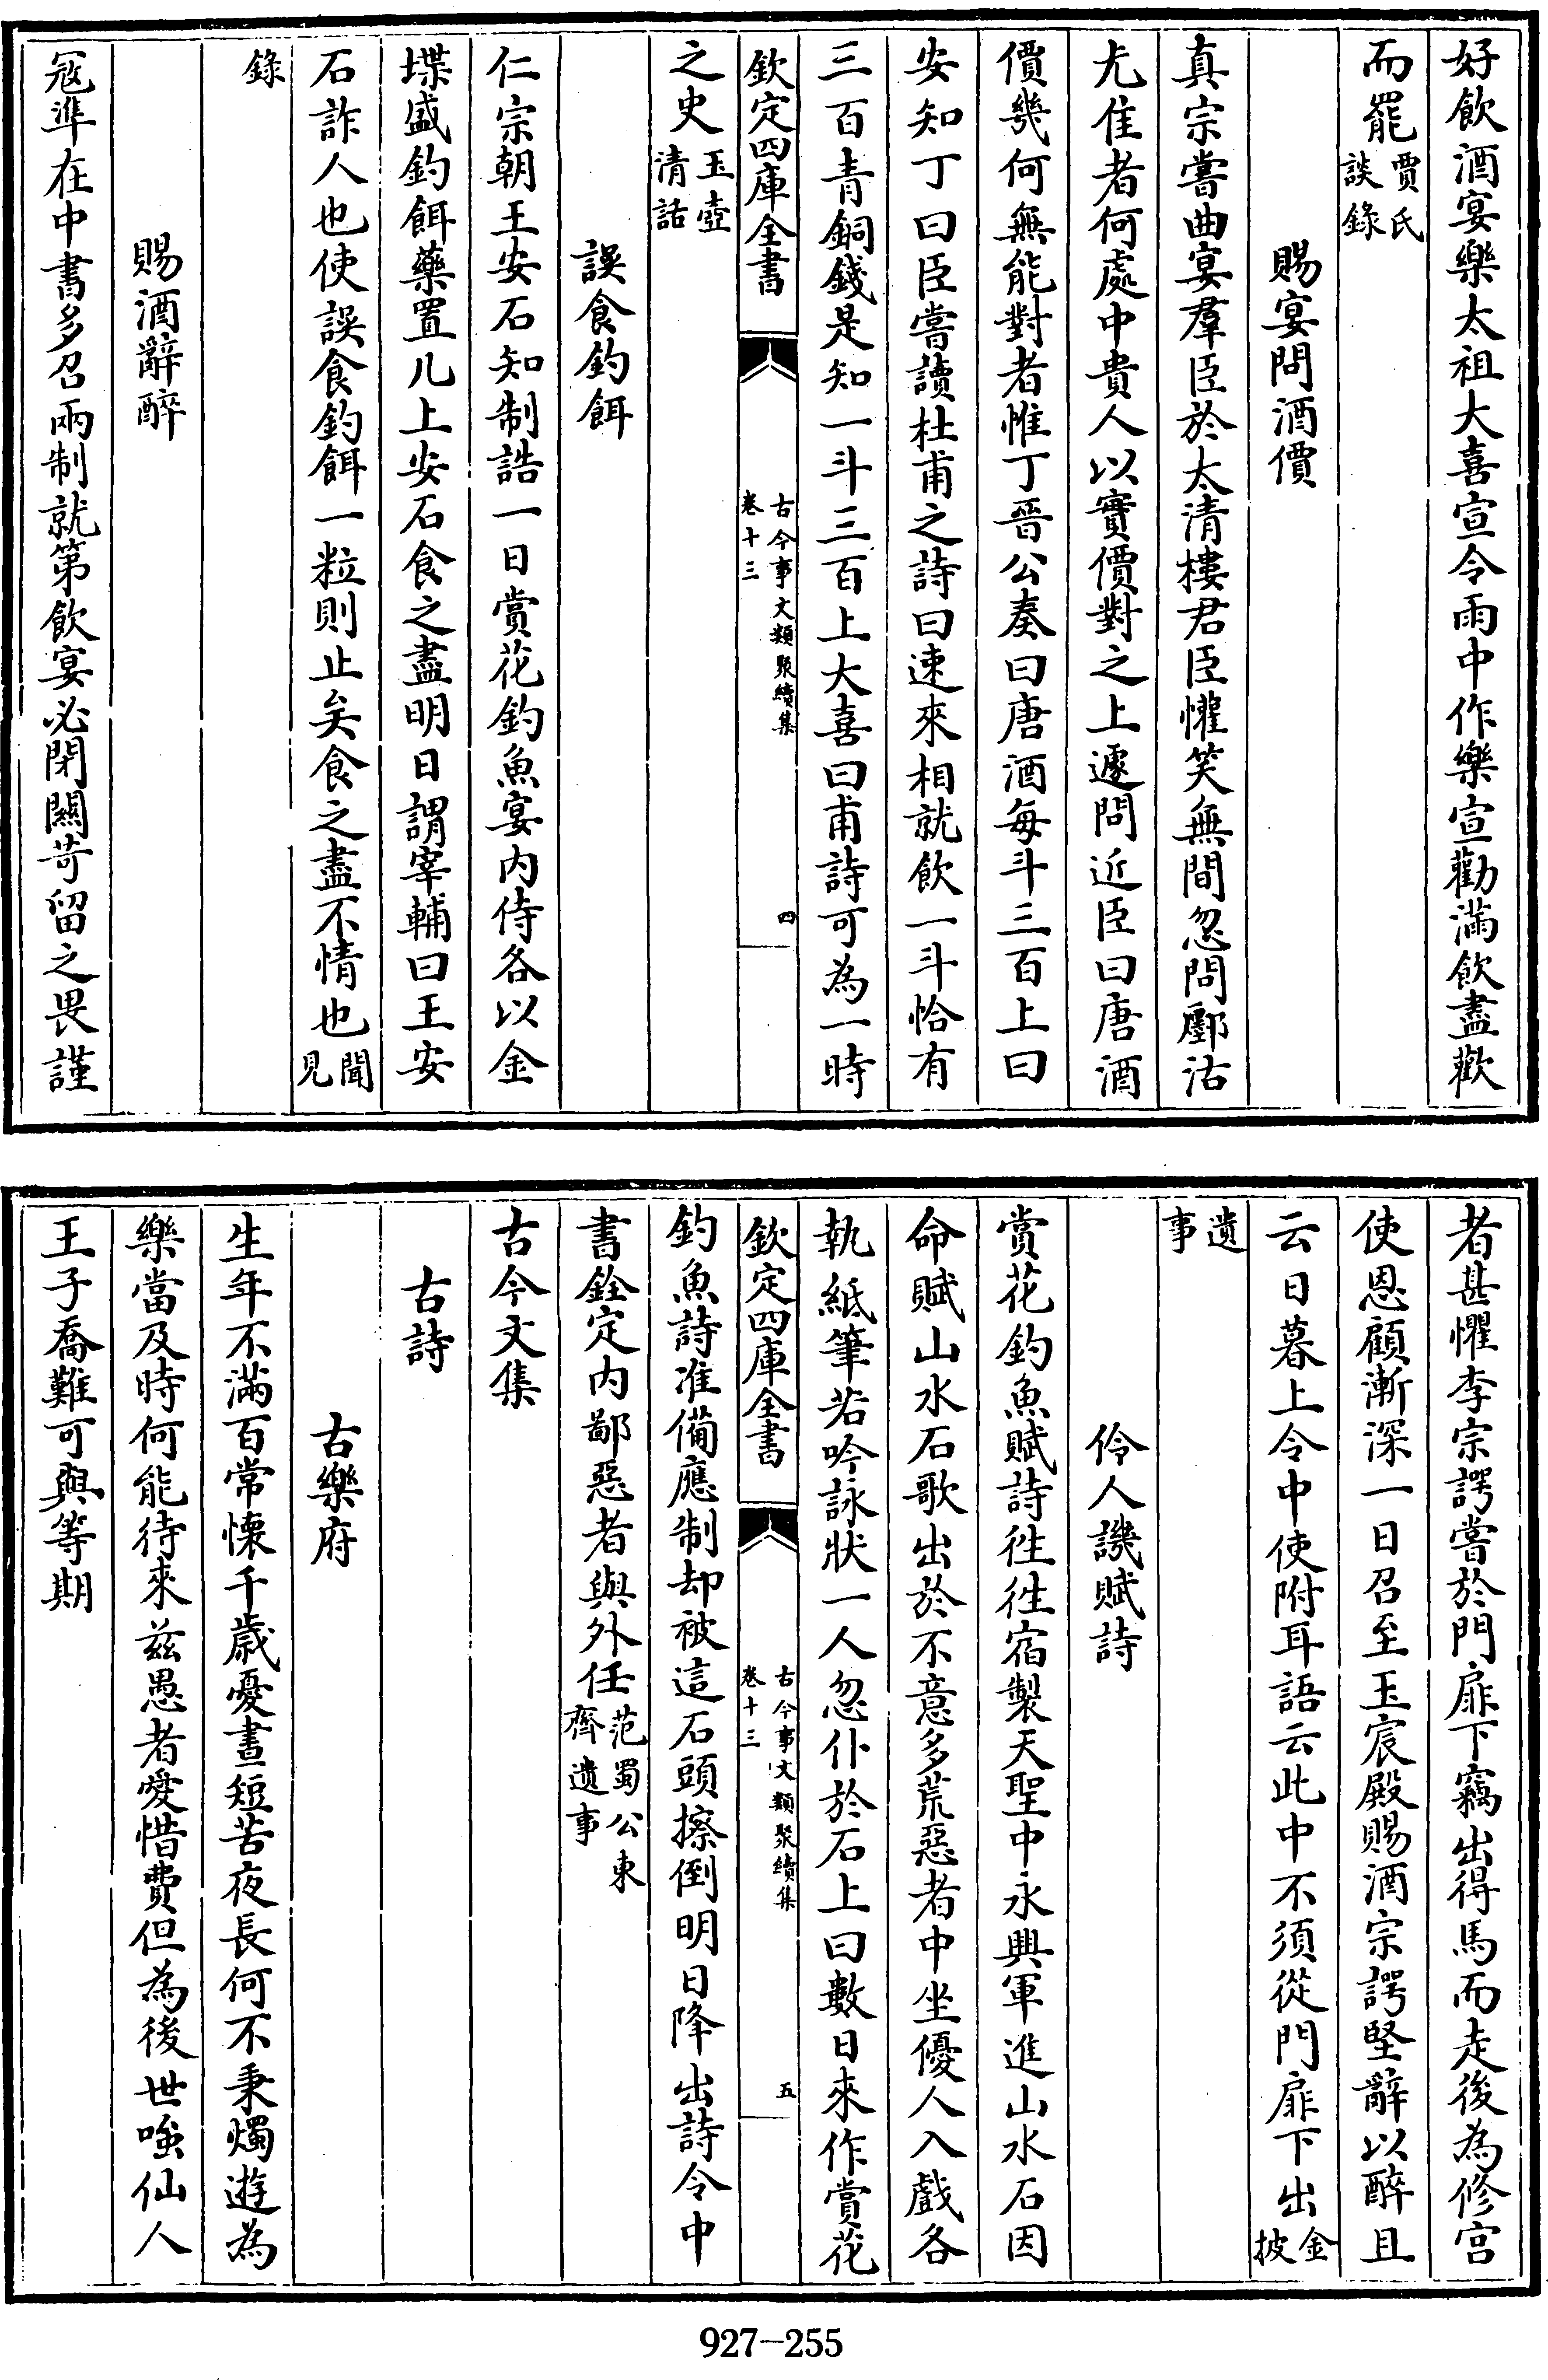 好飲酒宴樂太祖大喜宣令雨中作樂宣勸滿飲盡歡
而罷賈氏談錄
賜宴問酒價
真宗嘗曲宴羣臣於太清樓君臣懽笑無間忽問酃沽
尤佳者何處中貴人以實價對之上遽問近臣曰唐酒
價幾何無能對者惟丁晉公奏曰唐酒每斗三百上曰
安知丁曰臣嘗讀杜甫之詩曰速來相就飲一斗恰有
三百青銅錢是知一斗三百上大喜曰甫詩可為一時
欽定四庫全書 古今事文類聚續集卷十三 四
之史玉壺清話
誤食釣餌
仁宗朝王安石知制誥一日賞花釣魚宴内侍各以金
堞盛釣餌藥置几上安石食之盡明日謂宰輔曰王安
石詐人也使誤食釣餌一粒則止矣食之盡不情也聞見
錄
賜酒辭醉
冦準在中書多召兩制就第飲宴必閉關苛留之畏謹
者甚懼李宗諤嘗於門扉下竊出得馬而走後為修宫
使恩顧漸深一日召至玉宸殿賜酒宗諤堅辭以醉且
云日暮上令中使附耳語云此中不須從門扉下出金披
遺事
伶人譏賦詩
賞花釣魚賦詩徃徃宿製天聖中永興軍進山水石因
命賦山水石歌出於不意多荒惡者中坐優人入戲各
執紙筆若吟詠狀一人忽仆於石上曰數日來作賞花
欽定四庫全書 古今事文類聚續集卷十三 五
釣魚詩准備應制却被這石頭擦倒明日降出詩令中
書銓定内鄙惡者與外任范蜀公東齊遺事
古今文集
古詩
古樂府
生年不滿百常懐千歳憂晝短苦夜長何不秉燭遊為
樂當及時何能待來兹愚者愛惜費但為後世嗤仙人
王子喬難可與等期
927-255